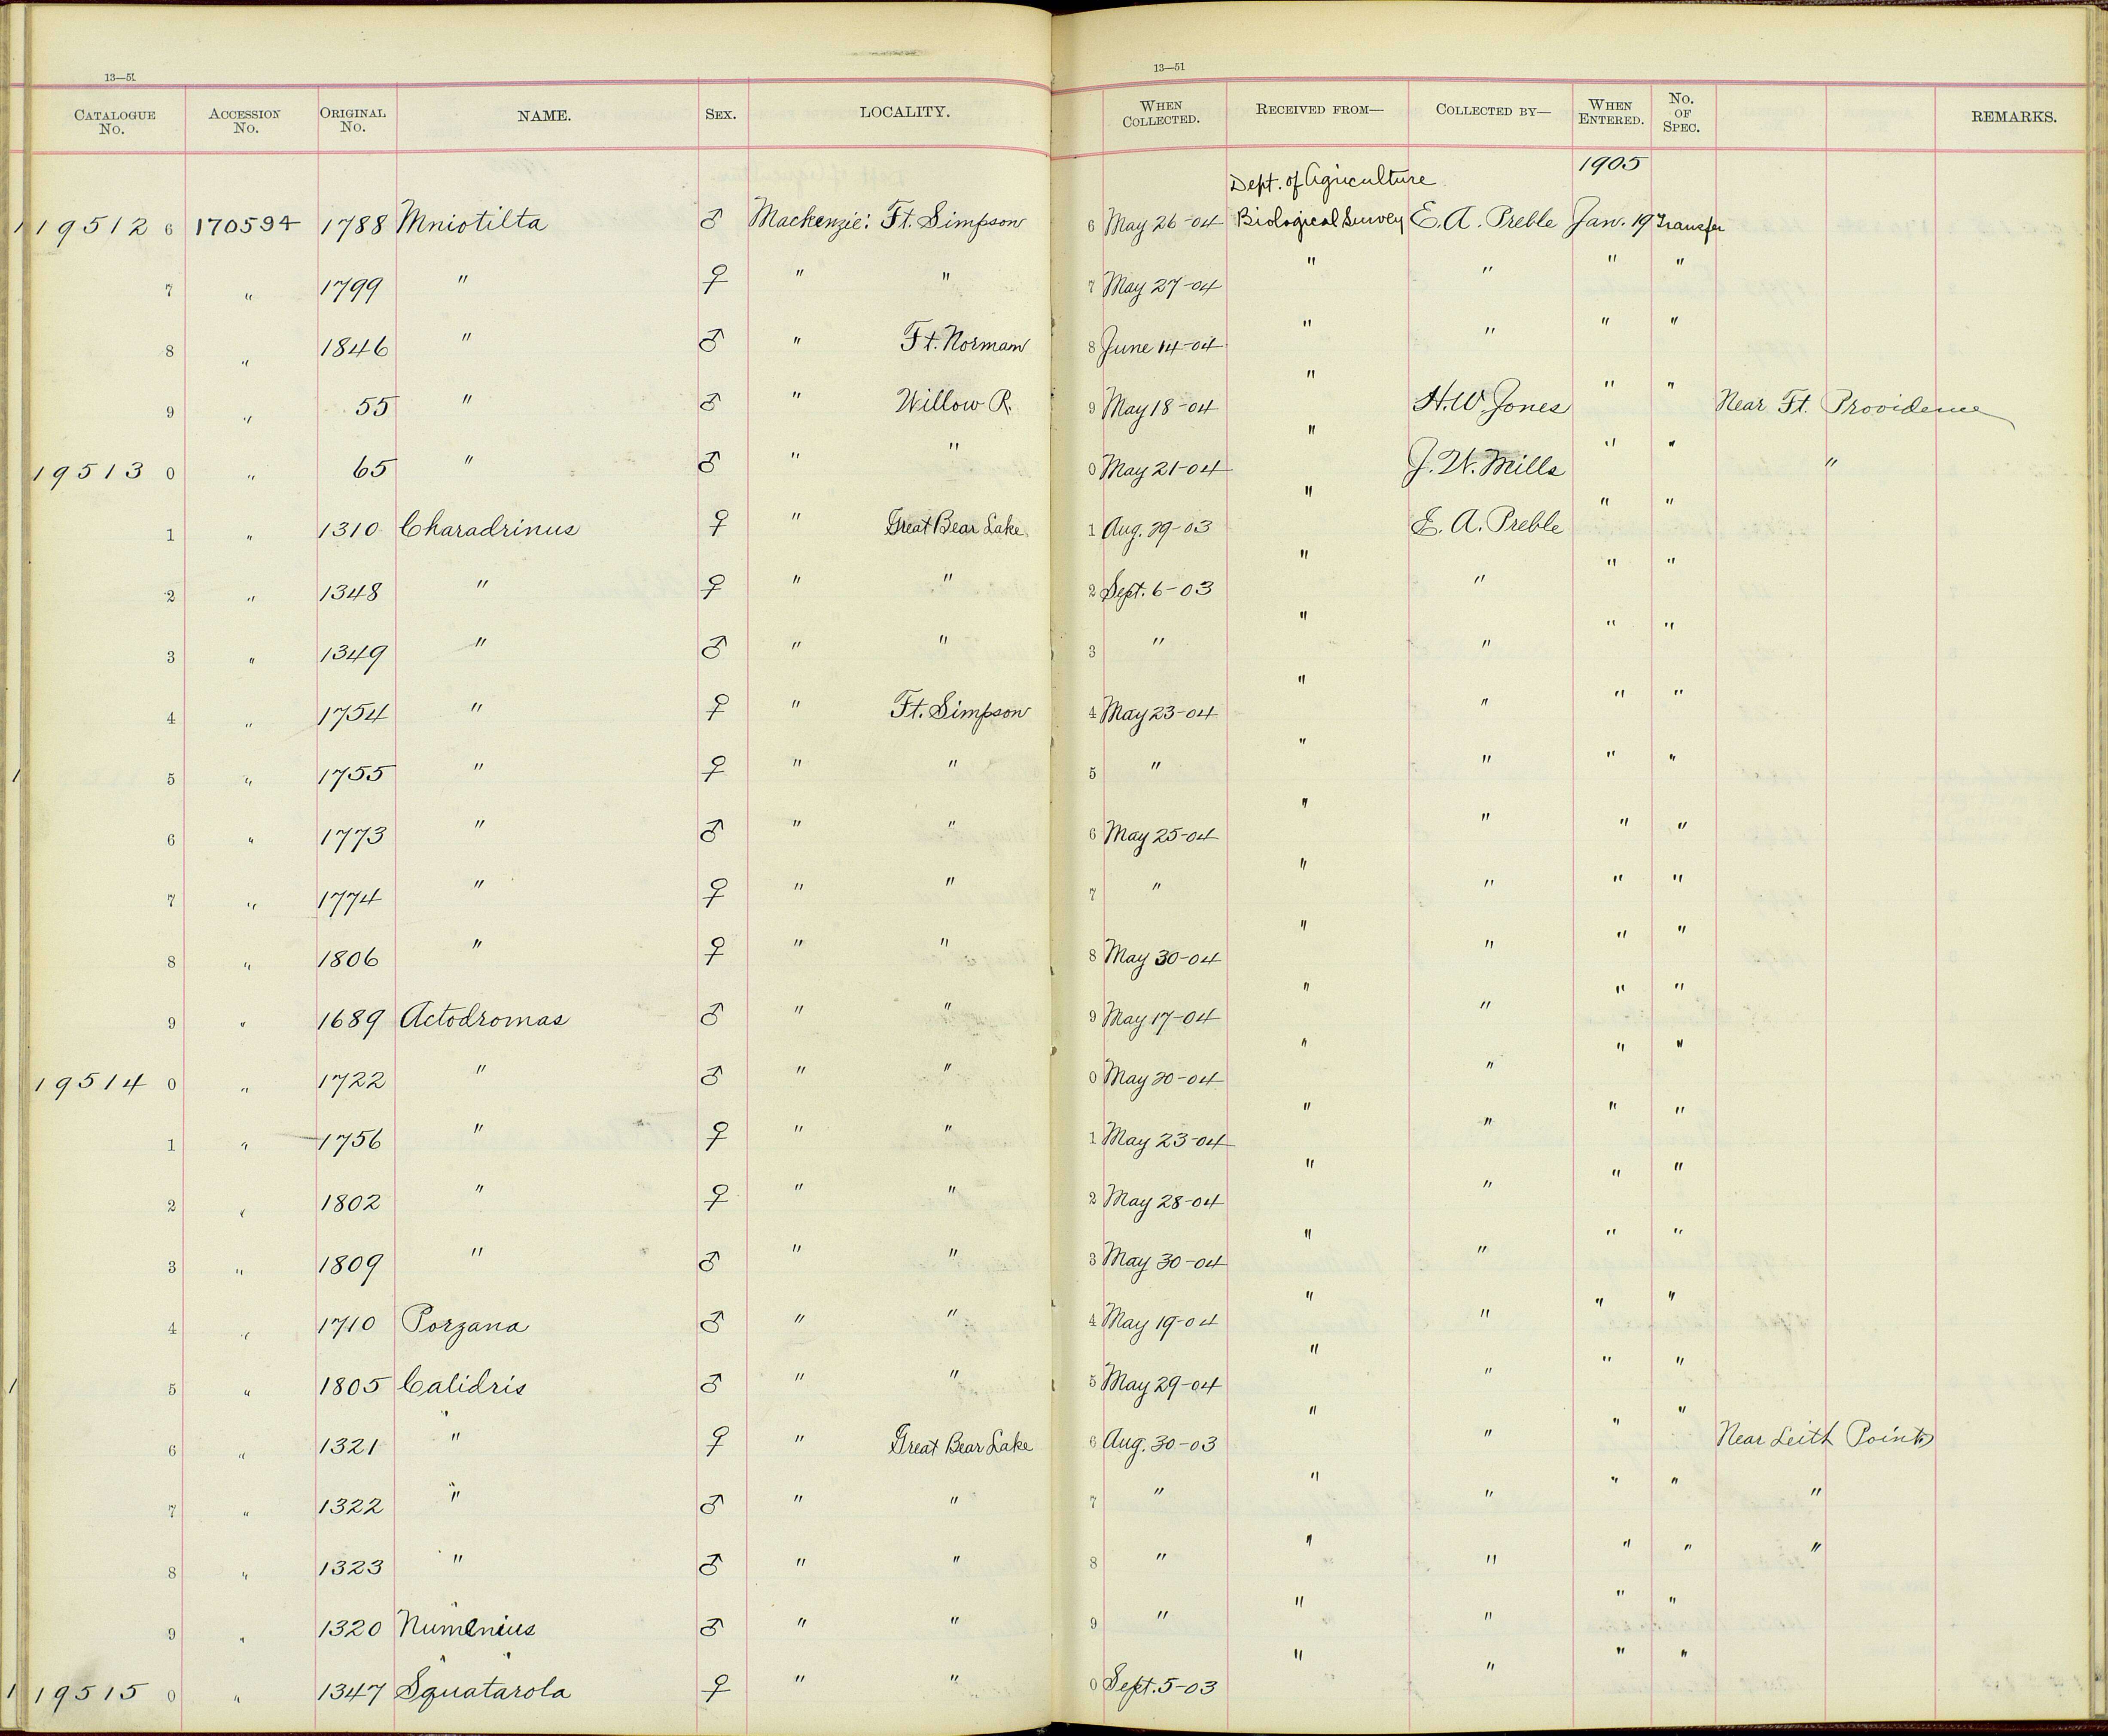 13—51 13—51
CATALOGUE No. ACCESSION No. ORIGINAL No. NAME. SEX. LOCALITY. WHEN COLLECTED. RECEIVED FROM— COLLECTED BY— WHEN ENTERED. No. OF SPEC. REMARKS.
1905
Dept. of Agriculture
1 19512 6 170594 1788 Mniotilta ♂ Mackenzie: Ft. Simpson 6 May 26-04 Biological Survey E. A. Preble Jan. 19 Transfer
7 " 1799 " ♀ " " 7 May 27-04 " " " "
8 " 1846 " ♂ " Ft. Norman 8 June 14-04 " " " "
9 " 55 " ♂ " Willow R. 9 May 18-04 " H. W. Jones " " Near Ft. Providence
19513 0 " 65 " ♂ " " 0 May 21-04 " J. W. Mills " " "
1 " 1310 Charadrinus ♀ " Great Bear Lake. 1 Aug. 29-03 " E. A. Preble " "
2 " 1348 " ♀ " " 2 Sept. 6-03 " " " "
3 " 1349 " ♂ " " 3 " " " " "
4 " 1754 " ♀ " Ft. Simpson 4 May 23-04 " " " "
1 5 " 1755 " ♀ " " 5 " " " " "
6 " 1773 " ♂ " " 6 May 25-04 " " " "
7 " 1774 " ♀ " " 7 " " " " "
8 " 1806 " ♀ " " 8 May 30-04 " " " "
9 " 1689 Actodromas ♂ " " 9 May 17-04 " " " "
19514 0 " 1722 " ♂ " " 0 May 20-04 " " " "
1 " 1756 " ♀ " " 1 May 23-04 " " " "
2 " 1802 " ♀ " " 2 May 28-04 " " " "
3 " 1809 " ♂ " " 3 May 30-04 " " " "
4 " 1710 Porzana ♂ " " 4 May 19-04 " " " "
1 5 " 1805 Calidris ♂ " " 5 May 29-04 " " " "
6 " 1321 " ♀ " Great Bear Lake 6 Aug. 30-03 " " " " Near Leith Point
7 " 1322 " ♂ " " 7 " " " " " "
8 " 1323 " ♂ " " 8 " " " " " "
9 " 1320 Numenius ♂ " " 9 " " " " "
1 19515 0 " 1347 Squatarola ♀ " " 0 Sept. 5-03 " " " "